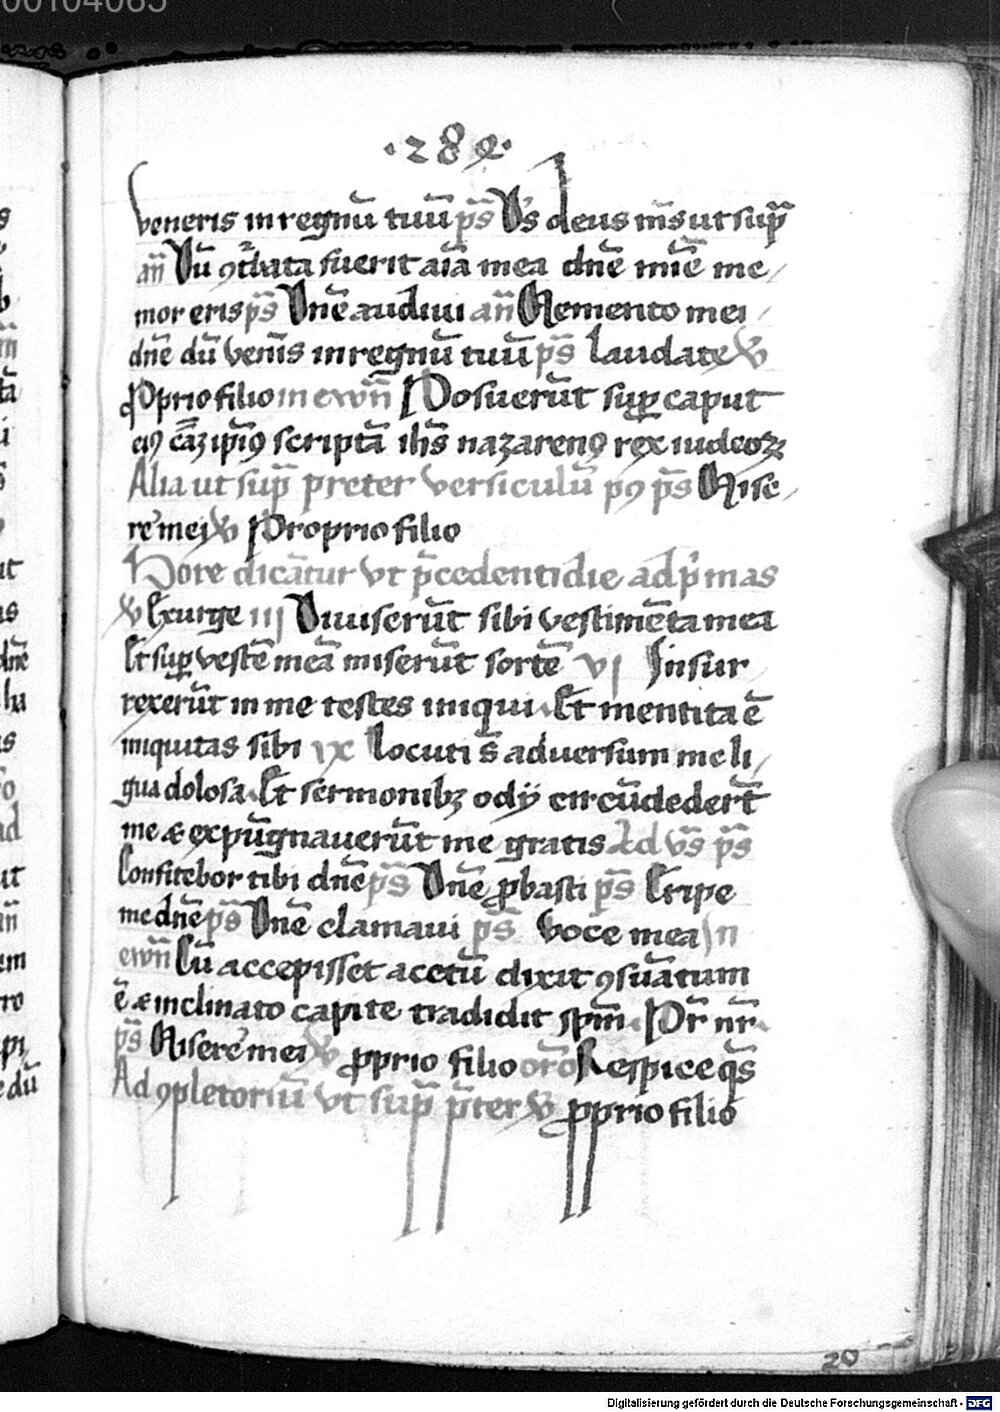 00104065
·282·
veneris in regnũ tuũ ps̃ Ds̃ deus m̃s ut sup̃
añ Dũ ꝯt̾bata fuerit aĩa mea dñe mĩe me/
mor eris ps̃ Dñe audiui añ Memento mei /
dñe dũ veñis in regnũ tuũ ps̃ laudate ℣
Pꝓprio filio in ewñ Posuerũt suꝑ caput
eiꝯ cãꝫ ip̃iꝯ scriptã ihs̃ nazarenꝯ rex iudeoꝝ
Alia ut sup̃ preter versiculũ pꝯ ps̃ Mise/
re᷑ mei ℣ Proprio filio
Hore dicãtur vt p̃cedenti die ad p̾mas
℣ Exurge III Diuiserũt sibi vestimẽta mea
Et suꝑ vestẽ meã miserũt sortẽ VI Insur
rexerũt in me testes iniqui · Et mentita ẽ
iniquitas sibi IX locuti s̃ adversum me li/
gua dolosa · Et sermonibꝫ odij circũdedert̃
me & expũgnauerũt me gratis Ad vs̃ ps̃
Confitebor tibi dñe ps̃ Dñe ꝓbasti ps̃ Eripe
me dñe ps̃ Dñe clamaui ps̃ Voce mea In
ewñ Cũ accepisset acetũ dixit ꝯsũatum
ẽ & inclinato capite tradidit spm̃ · Pr̃ nr̃ ·
ps̃ Misere᷑ mei ℣ ꝓprio filio orõ Respice qs̃
Ad ꝯpletoriũ vt sup̃ p̃ter ℣ ꝓprio filio
20
Digitalisierung gefördert durch die Deutsche Forschungsgemeinschaft - DFG